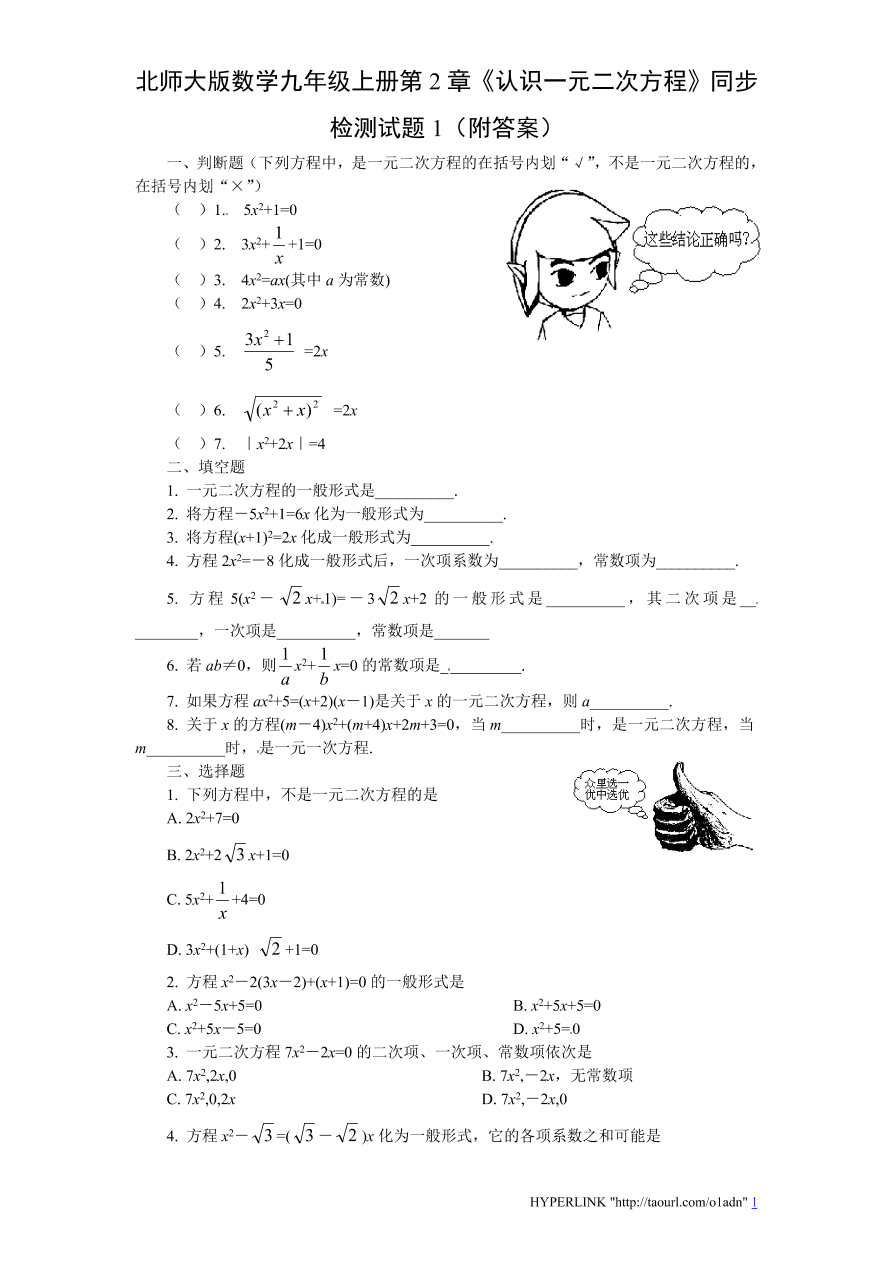 北师大版数学九年级上册第 2 章《认识一元二次方程》同步
检测试题 1（附答案）
一、判断题（下列方程中，是一元二次方程的在括号内划“√”，不是一元二次方程的，
在括号内划“×”）
（ ）1. 5x²+1=0
（ ）2. 3x²+1/x+1=0
（ ）3. 4x²=ax(其中 a 为常数)
（ ）4. 2x²+3x=0
（ ）5. (3x²+1)/5 =2x
（ ）6. √((x²+x)²) =2x
（ ）7. ｜x²+2x｜=4
这些结论正确吗?
二、填空题
1. 一元二次方程的一般形式是__________.
2. 将方程－5x²+1=6x 化为一般形式为__________.
3. 将方程(x+1)²=2x 化成一般形式为__________.
4. 方程 2x²=－8 化成一般形式后，一次项系数为__________，常数项为__________.
5. 方程 5(x²－√2x+1)=－3√2x+2 的一般形式是__________，其二次项是__
________，一次项是__________，常数项是_______
6. 若 ab≠0，则 1/a x²+1/b x=0 的常数项是__________.
7. 如果方程 ax²+5=(x+2)(x－1)是关于 x 的一元二次方程，则 a__________.
8. 关于 x 的方程(m－4)x²+(m+4)x+2m+3=0，当 m__________时，是一元二次方程，当
m__________时，是一元一次方程.
三、选择题
众里选一
优中选优
1. 下列方程中，不是一元二次方程的是
A. 2x²+7=0
B. 2x²+2√3x+1=0
C. 5x²+1/x+4=0
D. 3x²+(1+x) √2+1=0
2. 方程 x²－2(3x－2)+(x+1)=0 的一般形式是
A. x²－5x+5=0 B. x²+5x+5=0
C. x²+5x－5=0 D. x²+5=0
3. 一元二次方程 7x²－2x=0 的二次项、一次项、常数项依次是
A. 7x²,2x,0 B. 7x²,－2x，无常数项
C. 7x²,0,2x D. 7x²,－2x,0
4. 方程 x²－√3=(√3－√2)x 化为一般形式，它的各项系数之和可能是
HYPERLINK "http://taourl.com/o1adn" 1